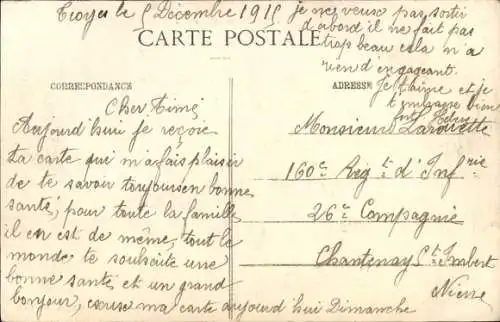 Troyes le 5 Décembre 1915
CARTE POSTALE
CORRESPONDANCE
Cher Aimé
Aujourd'hui je reçoie
ta carte qui m'a fais plaisir
de te savoir toujours en bonne
santé, pour toute la famille
il en est de même, tout le
monde te souhaite une
bonne santé, et un grand
bonjour, ma carte aujourd'hui Dimanche
je ne veux pas sortir
d'abord il ne fait pas
trop beau cela n'a
rien d'engageant.
Je t'aime et je
t'embrasse bien
fort
ADRESSE
Monsieur
160e Rig t d'Infrie
26e Compagnie
Chantenay St Imbert
Nièvre